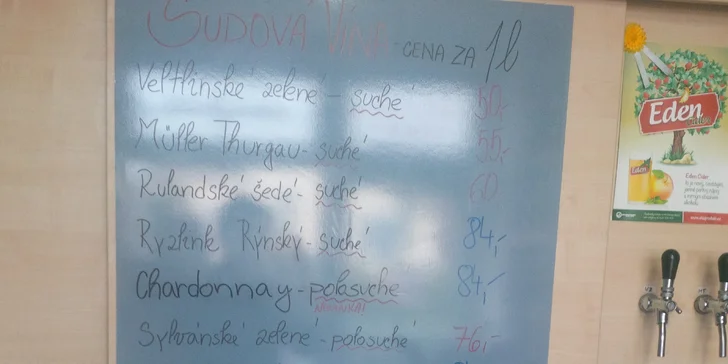 SUDOVÁ VÍNA - CENA ZA 1l
Veltlínské zelené - suché 50,-
Müller Thurgau - suché 55,-
Rulandské šedé - suché 60
Ryzlink Rýnský - suché 84,-
Chardonnay - polosuché 84,-
NOVINKA!
Sylvánské zelené - polosuché 76,-
Eden
Eden Cider